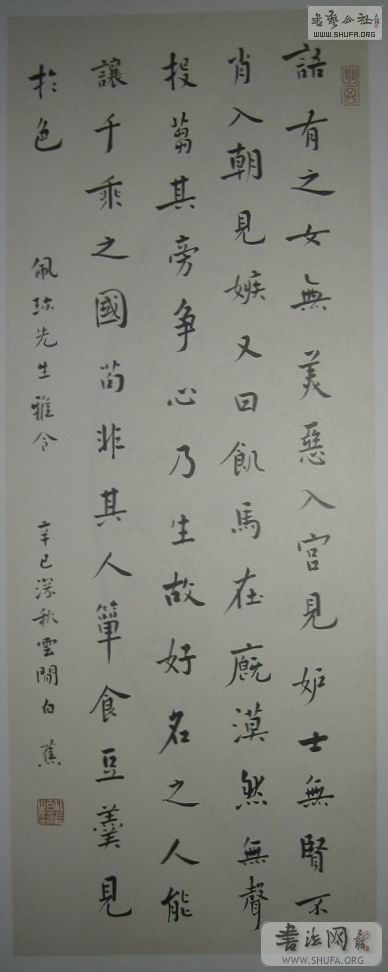 語有之女無美惡入宮見妒士無賢不
肖入朝見嫉又曰飢馬在廄漠然無聲
投芻其旁爭心乃生故好名之人能
讓千乘之國苟非其人簞食豆羹見
於色
佩珍先生雅令
辛巳深秋雲間白蕉
書藝公社
WWW.SHUFA.ORG
书法网
WWW.SHUFA.ORG